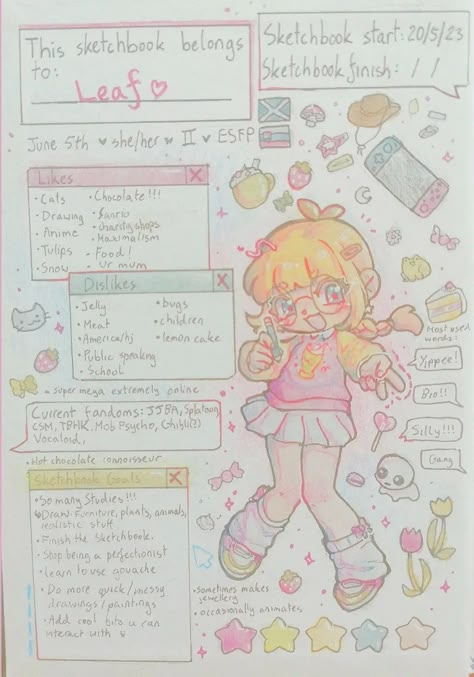 This sketchbook belongs
to:
Leaf ♡
Sketchbook start: 20/5/23
Sketchbook finish: / /
June 5th ♥ she/her ♥ II ♥ ESFP
Likes X
• Cats
• Drawing
• Anime
• Tulips
• Snow
• Chocolate!!!
• Sanrio
• charity shops
• Maximalism
• Food!
• ur mum
Dislikes X
• Jelly
• Meat
• America/hj
• Public speaking
• School
• bugs
• children
• lemon cake
- super mega extremely online
Current fandoms: JJBA, Splatoon
CSM, TBHK, Mob Psycho, Ghibli(?)
Vocaloid,
• Hot chocolate connoisseur
Sketchbook Goals X
• So many Studies!!!
Draw: Furniture, plants, animals,
realistic stuff
• Finish the Sketchbook.
• Stop being a perfectionist
• Learn to use gouache
• Do more quick/messy
drawings/paintings
• Add cool bits u can
interact with
Most used
words:
Yippee!
Bro!!
Silly!!!
Gang
• sometimes makes
jewellery
• occasionally animates